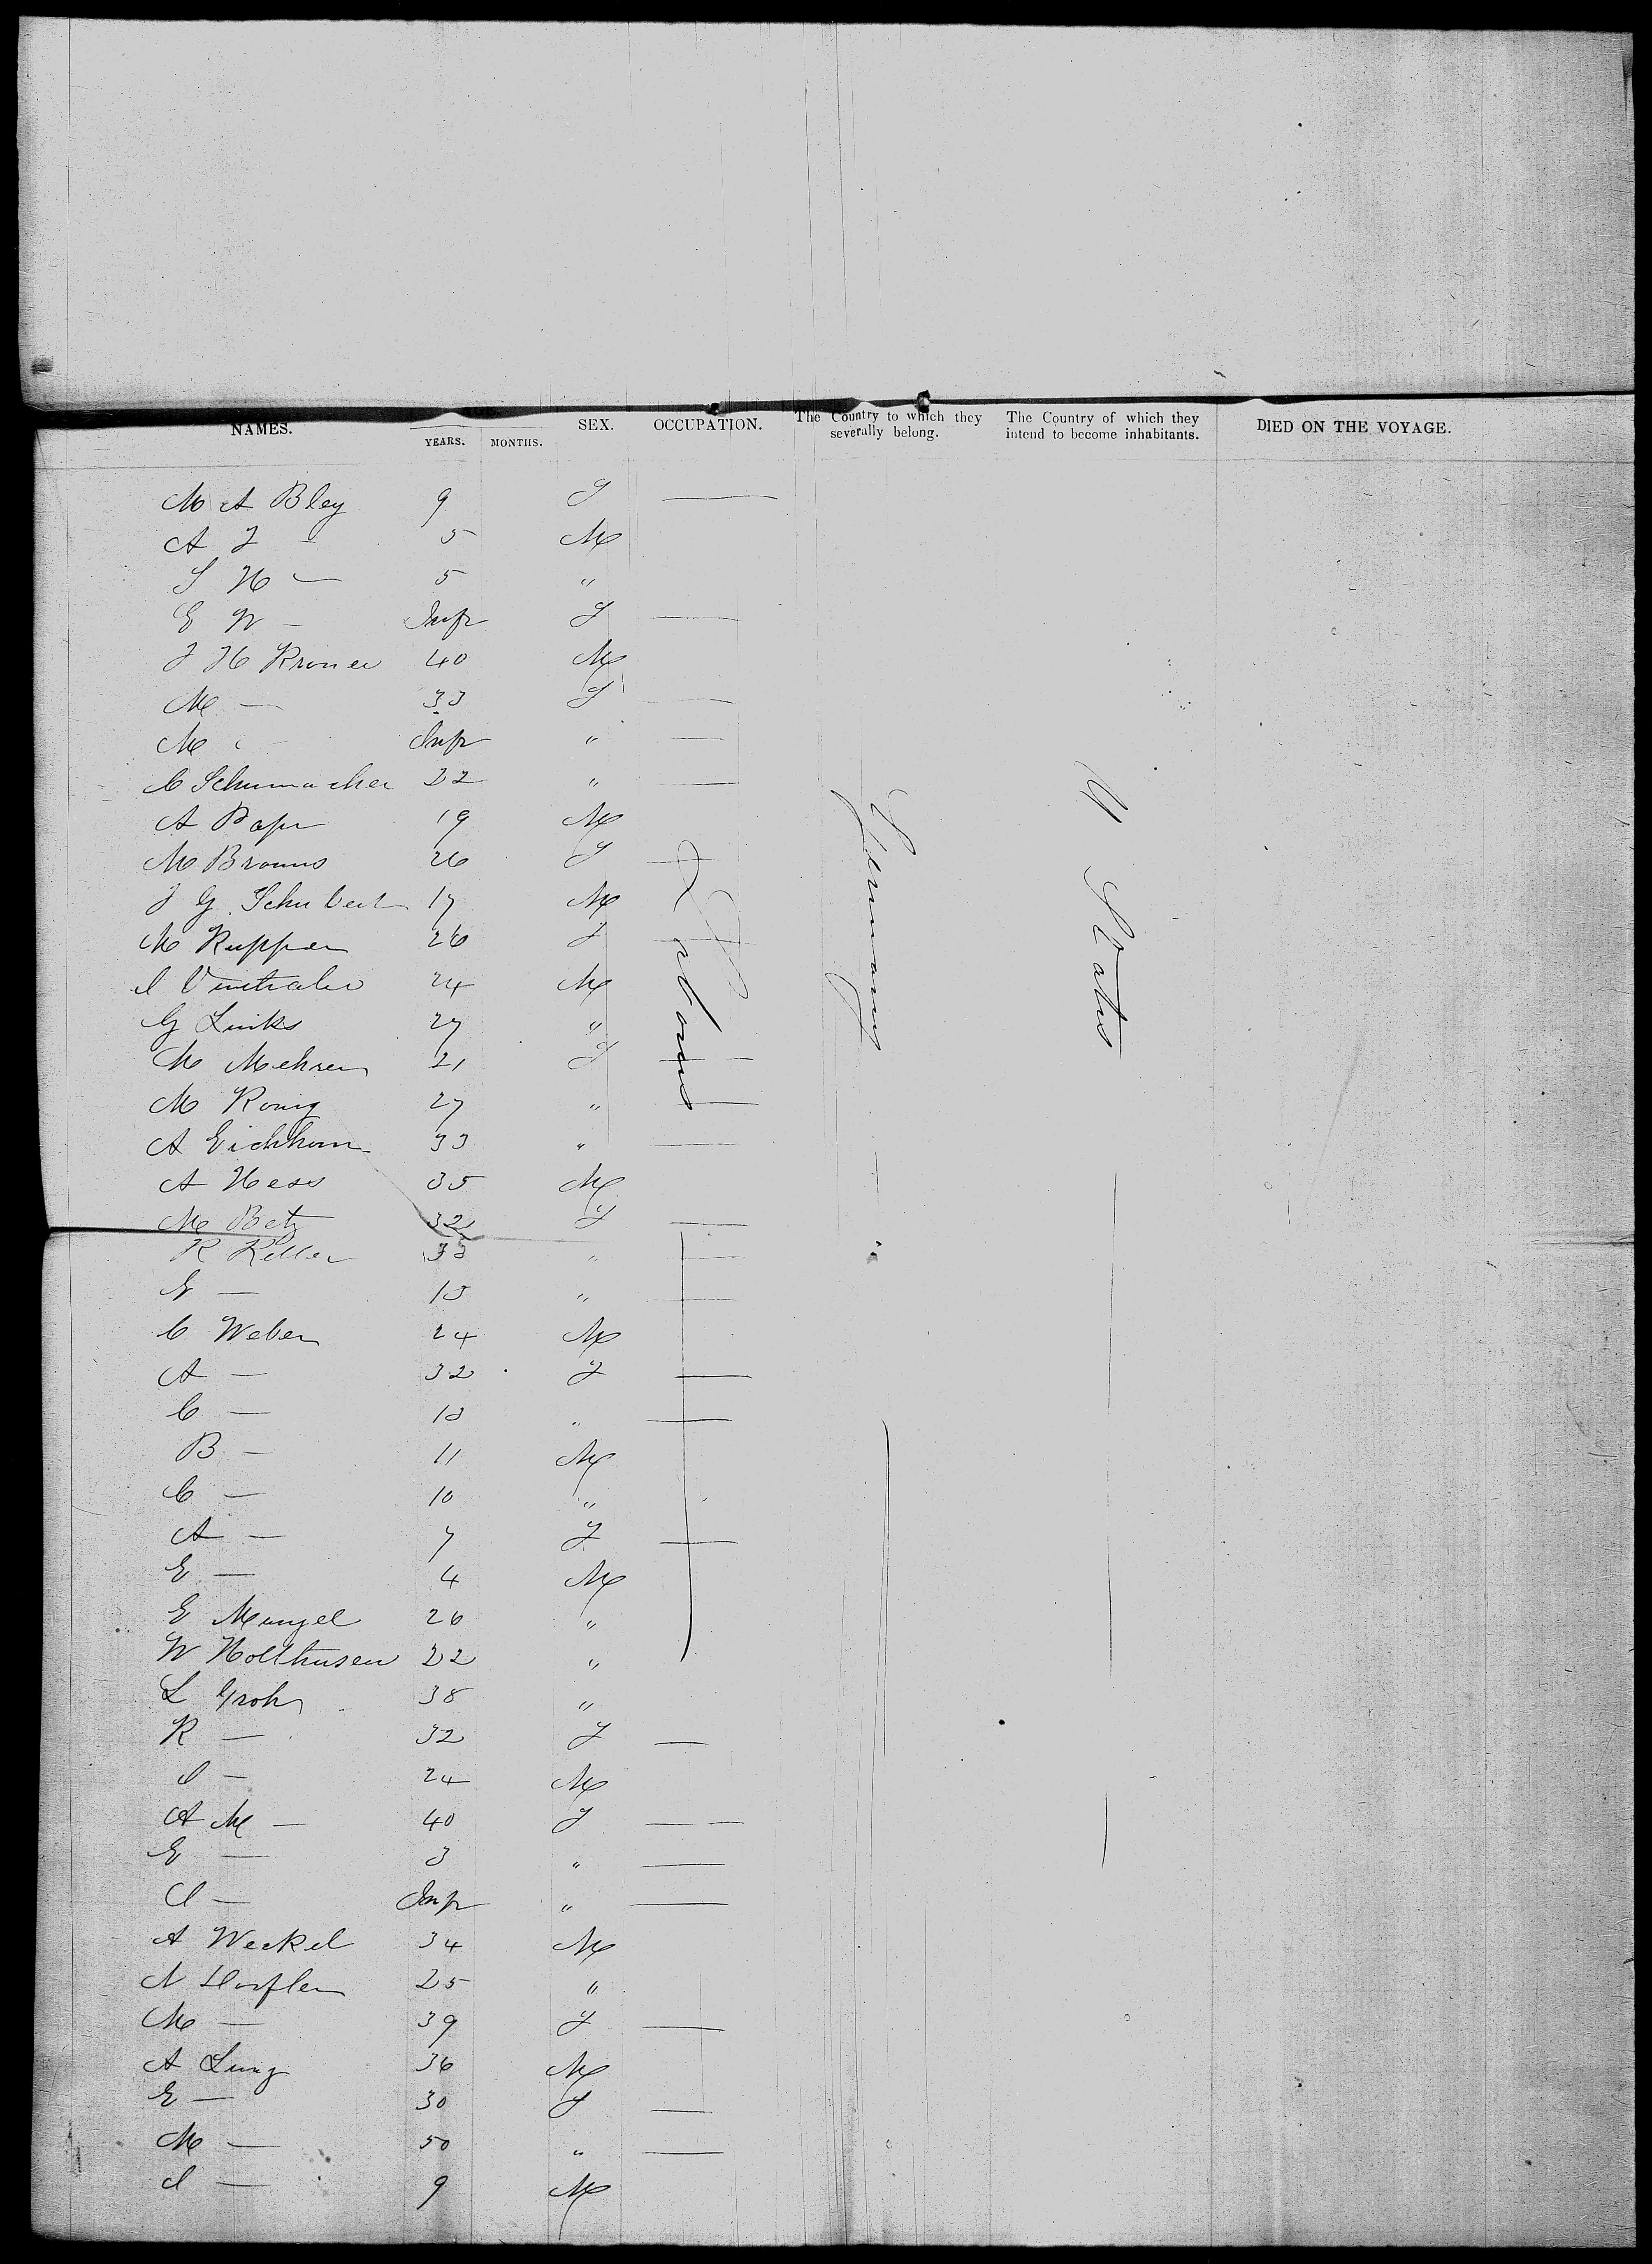 NAMES. YEARS. MONTHS. SEX. OCCUPATION. The Country to which they severally belong. The Country of which they intend to become inhabitants. DIED ON THE VOYAGE.
M A Bley 9 F —
A F - 5 M
S H — 5 "
E W - Inft F —
J H Kroner 40 M
M — 33 F —
M - Inft " —
C Schumacher 22 " —
A Pape 19 M
M Brauns 26 F —
J G Schubert 17 M
M Kupper 26 F —
24 M
G Links 27 "
M Mehren 21 F —
M Konig 27 " —
A Eichhorn 33 " —
A Hess 35 M
M Betz 32 F —
K Keller 33 " —
E — 13 " —
C Weber 24 M
A — 32 F —
C — 13 " —
B — 11 M
C — 10 "
A — 7 F —
E — 4 M
E Mengel 26 "
W Holthusen 22 "
L Groh 38 "
K — 32 F —
J — 24 M
A M — 40 F — —
E — 3 " —
— Inft " —
A Weckel 34 M
N Dorfler 25 "
M — 39 F —
A Lung 36 M
E — 30 F —
M — 50 " —
J — 9 M
Laborers
Germany
U States